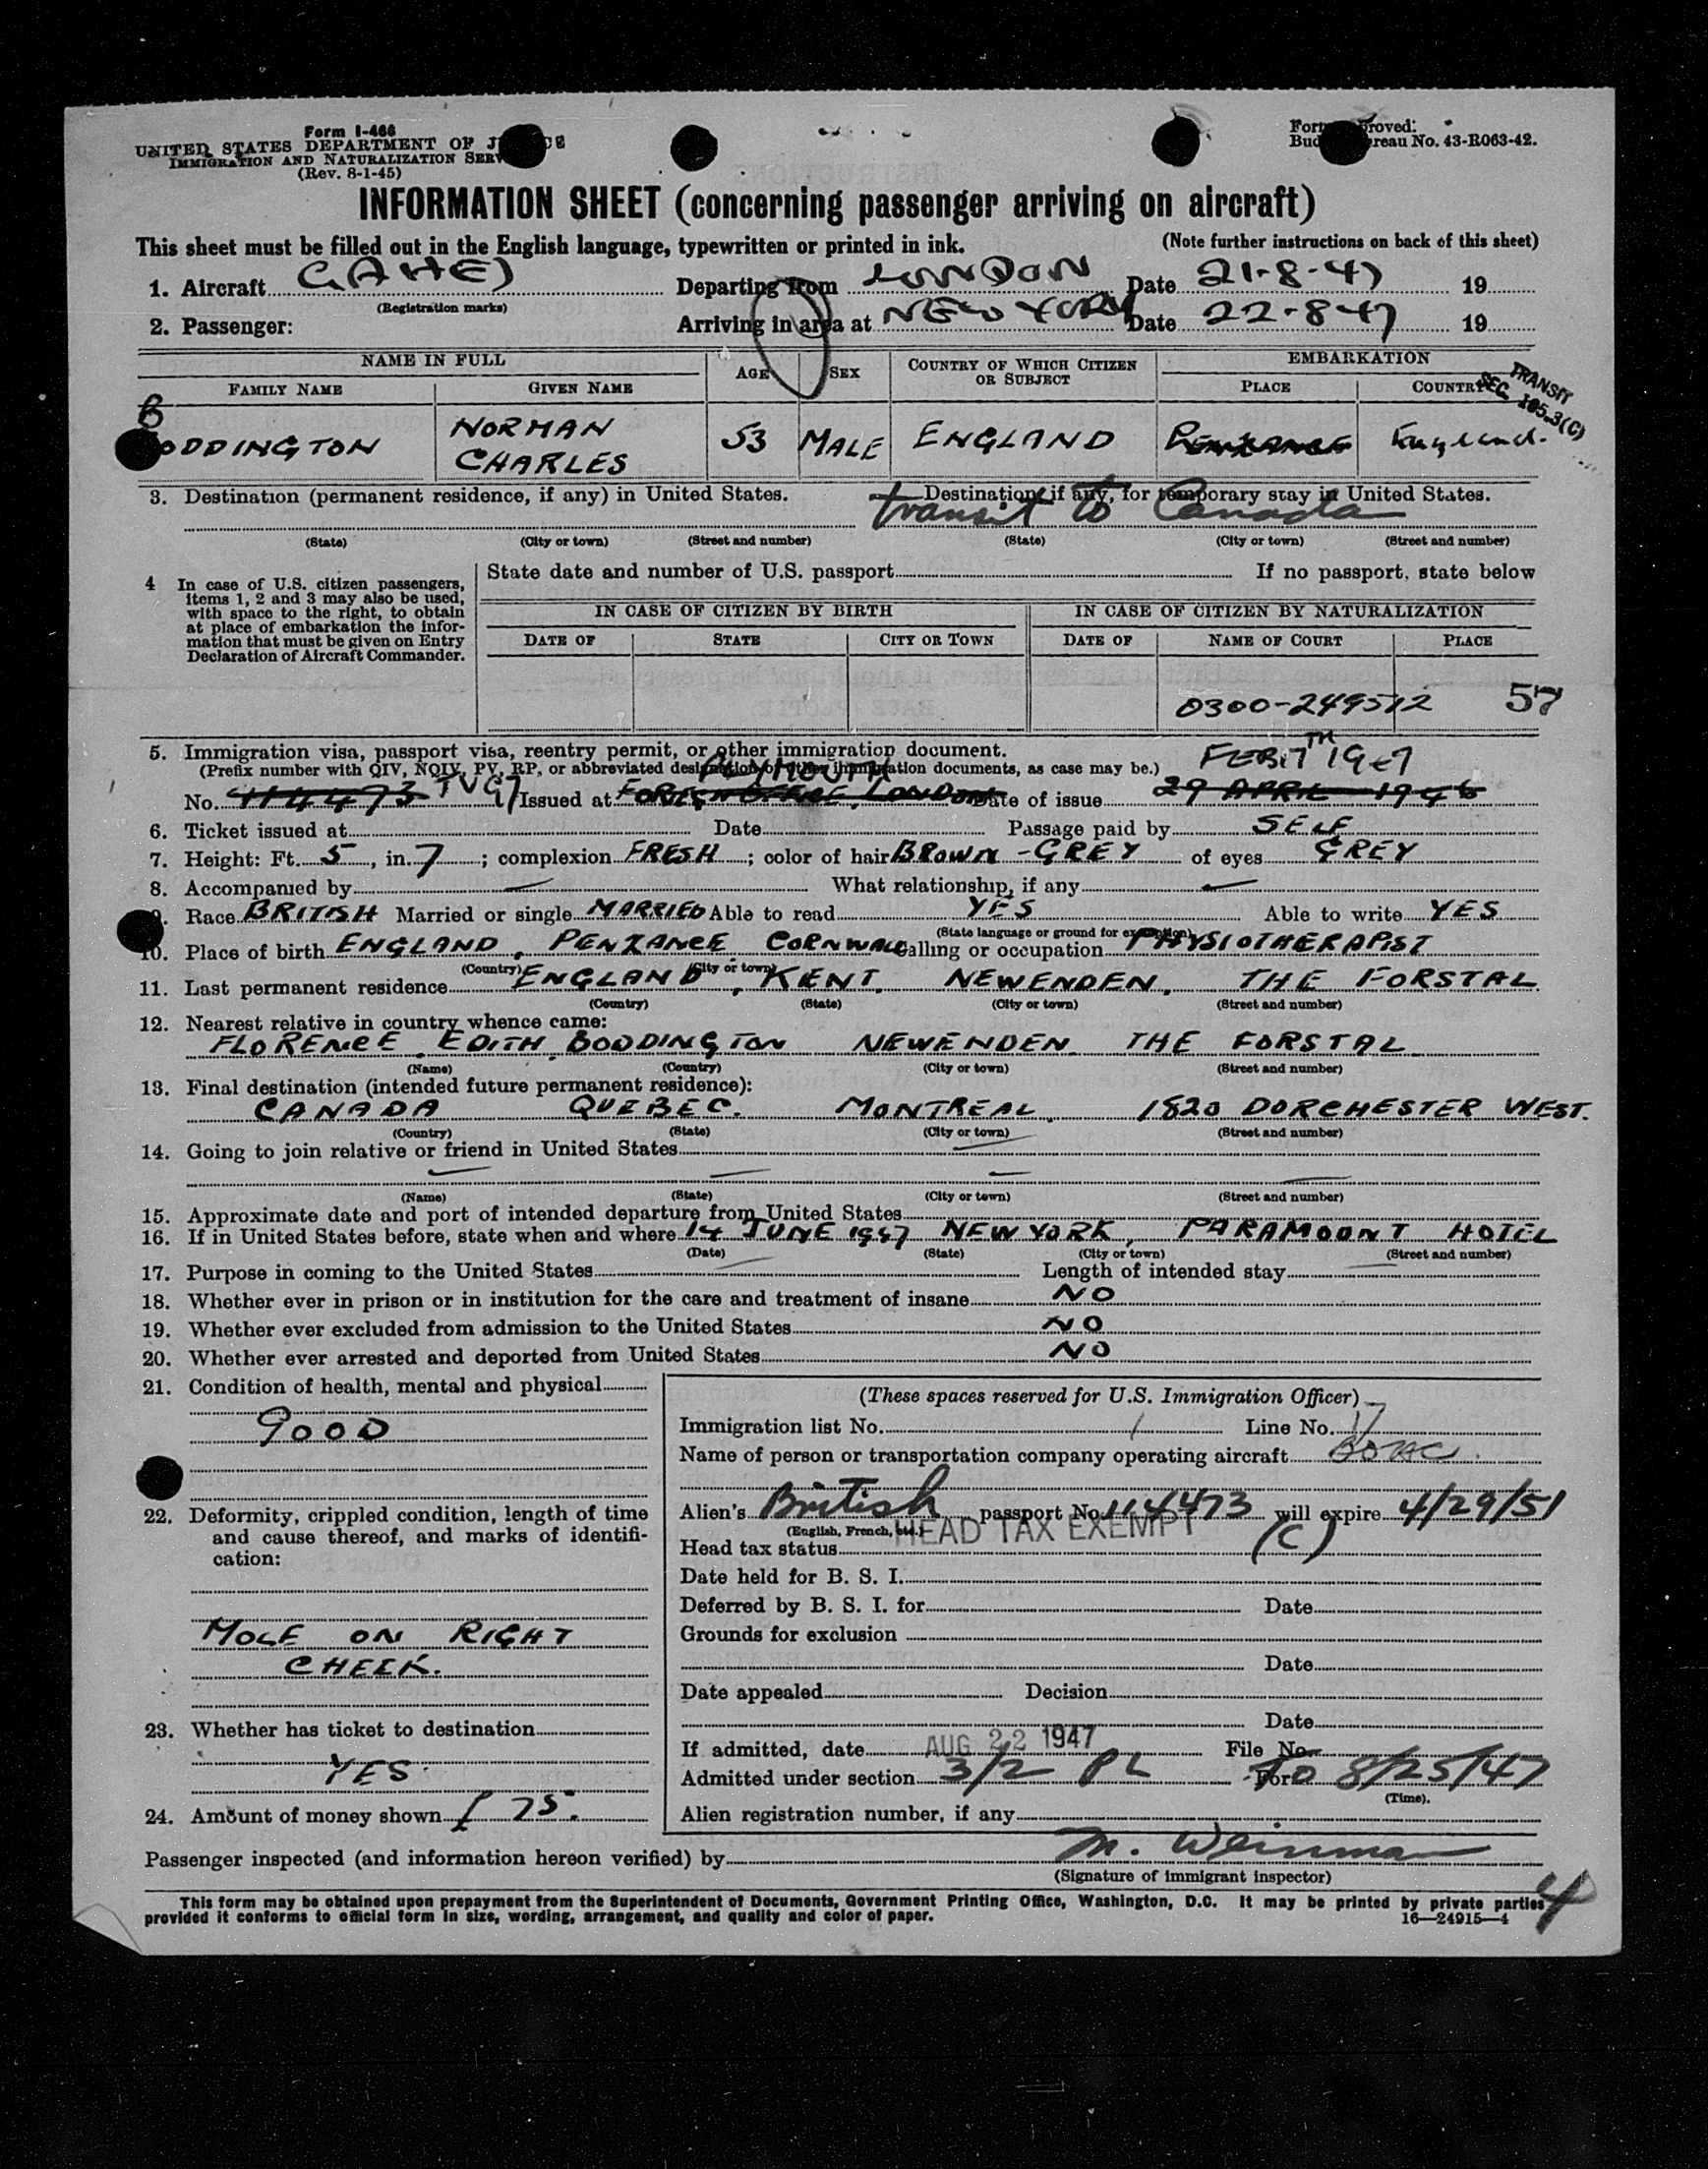 Form I-466
UNITED STATES DEPARTMENT OF J CE
IMMIGRATION AND NATURALIZATION SERV
(Rev. 8-1-45)
Form roved:
Bud reau No. 43-R063-42.
INFORMATION SHEET (concerning passenger arriving on aircraft)
This sheet must be filled out in the English language, typewritten or printed in ink. (Note further instructions on back of this sheet)
1. Aircraft GAHEJ Departing from LONDON Date 21-8-47 19
(Registration marks)
2. Passenger: Arriving in area at NEW YORK Date 22-8-47 19
NAME IN FULL AGE SEX COUNTRY OF WHICH CITIZEN OR SUBJECT EMBARKATION
FAMILY NAME GIVEN NAME PLACE COUNTRY
TRANSIT
SEC. 105.3(C)
BODDINGTON NORMAN CHARLES 53 MALE ENGLAND PENZANCE England.
3. Destination (permanent residence, if any) in United States. Destination, if any, for temporary stay in United States.
transit to Canada
(State) (City or town) (Street and number) (State) (City or town) (Street and number)
4 In case of U.S. citizen passengers, items 1, 2 and 3 may also be used, with space to the right, to obtain at place of embarkation the information that must be given on Entry Declaration of Aircraft Commander.
State date and number of U.S. passport If no passport, state below
IN CASE OF CITIZEN BY BIRTH IN CASE OF CITIZEN BY NATURALIZATION
DATE OF STATE CITY OR TOWN DATE OF NAME OF COURT PLACE
0300-249512 57
5. Immigration visa, passport visa, reentry permit, or other immigration document. FEB 17TH 1947
(Prefix number with QIV, NQIV, PV, RP, or abbreviated designation of other immigration documents, as case may be.)
PLYMOUTH
No. 114473 TV 97 Issued at FOREIGN OFFICE, LONDON Date of issue 29 APRIL 1946
6. Ticket issued at Date Passage paid by SELF
7. Height: Ft. 5, in. 7; complexion FRESH; color of hair BROWN-GREY of eyes GREY
8. Accompanied by — What relationship, if any —
9. Race BRITISH Married or single MARRIED Able to read YES Able to write YES
(State language or ground for exemption)
10. Place of birth ENGLAND, PENZANCE CORNWALL Calling or occupation PHYSIOTHERAPIST
(Country) (City or town)
11. Last permanent residence ENGLAND, KENT, NEWENDEN, THE FORSTAL
(Country) (State) (City or town) (Street and number)
12. Nearest relative in country whence came:
FLORENCE EDITH BODDINGTON NEWENDEN THE FORSTAL
(Name) (Country) (City or town) (Street and number)
13. Final destination (intended future permanent residence):
CANADA QUEBEC. MONTREAL, 1820 DORCHESTER WEST.
(Country) (State) (City or town) (Street and number)
14. Going to join relative or friend in United States —
— — — —
(Name) (State) (City or town) (Street and number)
15. Approximate date and port of intended departure from United States
16. If in United States before, state when and where 14 JUNE 1947 NEW YORK, PARAMOUNT HOTEL
(Date) (State) (City or town) (Street and number)
17. Purpose in coming to the United States — Length of intended stay —
18. Whether ever in prison or in institution for the care and treatment of insane NO
19. Whether ever excluded from admission to the United States NO
20. Whether ever arrested and deported from United States NO
21. Condition of health, mental and physical
GOOD
22. Deformity, crippled condition, length of time and cause thereof, and marks of identification:
MOLE ON RIGHT
CHEEK.
23. Whether has ticket to destination
YES
24. Amount of money shown £ 75.
(These spaces reserved for U.S. Immigration Officer)
Immigration list No. 1 Line No. 17
Name of person or transportation company operating aircraft BOAC
Alien's British passport No. 114473 will expire 4/29/51
(English, French, etc.)
HEAD TAX EXEMPT
Head tax status (C)
Date held for B. S. I.
Deferred by B. S. I. for Date
Grounds for exclusion
Date
Date appealed Decision
Date
If admitted, date AUG 22 1947 File No.
Admitted under section 3/2 PL For TO 8/25/47
(Time).
Alien registration number, if any
Passenger inspected (and information hereon verified) by M. Weinman
(Signature of immigrant inspector)
This form may be obtained upon prepayment from the Superintendent of Documents, Government Printing Office, Washington, D.C. It may be printed by private parties
provided it conforms to official form in size, wording, arrangement, and quality and color of paper. 16—24915—4
4